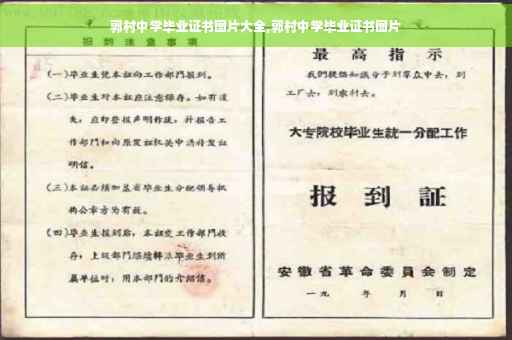 郭村中学毕业证书图片大全,郭村中学毕业证书图片
报到注意事项
(一)毕业生凭本证向工作部门报到。
(二)毕业生对本证应注意保存。如有遗
失,应即登报声明作废,并报告工
作部门和向原发证机关申请补发证
明信。
(三)本证必须加盖省毕业生分配领导机
构公章方为有效。
(四)毕业生报到后,本证交工作部门收
存;上级部门继续转派毕业生到所
属单位时,用本部门的介绍信。
最高指示
我们提倡知识分子到群众中去,到
工厂去,到农村去。
大专院校毕业生統一分配工作
报到証
安徽省革命委員会制定
一九 年 月 日